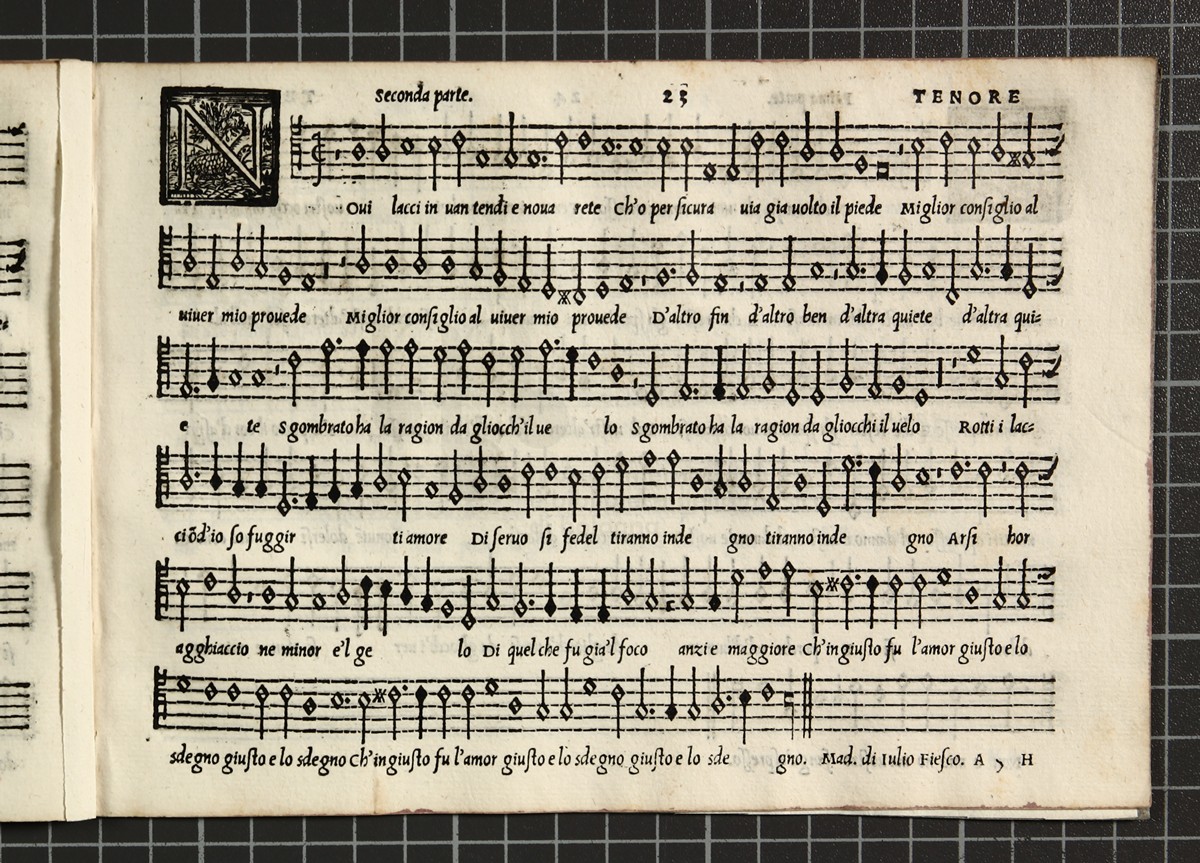 Seconda parte. 25 TENORE
NOui lacci in uan tendi e noua rete Ch'o per sicura uia gia uolto il piede Miglior consiglio al
uiuer mio prouede Miglior consiglio al uiuer mio prouede D'altro fin d'altro ben d'altra quiete d'altra qui=
e te Sgombrato ha la ragion da gliocch'il ue lo Sgombrato ha la ragion da gliocchi il uelo Rotti i lac=
ciõd'io so fuggir ti amore Di seruo si fedel tiranno inde gno tiranno inde gno Arsi hor
agghiaccio ne minor e'l ge lo Di quel che fu gia'l foco anzi e maggiore Ch'ingiusto fu l'amor giusto e lo
sdegno giusto e lo sdegno Ch'ingiusto fu l'amor giusto e lo sdegno giusto e lo sde gno. Mad. di Iulio Fiesco. A 5 H